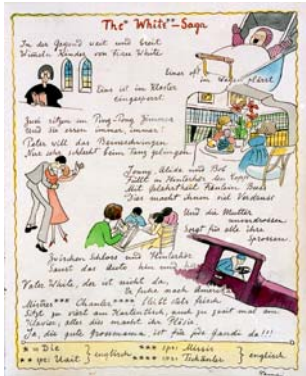 The* White**-Saga
In der Gegend weit und breit
Kinder von White
einer oft im Wagen plärrt
Eins ist im Kloster
eingesperrt.
Zwei sitzen im Ping-Pong Zimmer
Und die essen immer, immer!
Peter will das
Nur sehr schlecht beim Tanz gelingen
Conny, Alida und Bob
Füllt im Hinterhof den
Mit Gelehrtheit Fräulein
Dies macht ihnen viel
Und die Mutter
unverdrossen
Sorgt für alle ihre
Sprossen.
Zwischen Schloss und Hinterhof
Saust das Auto hin und
Vater White, der ist nicht da,
Er fuhr nach Amerika
Mistres*** Chanler**** bleibt stets frisch
Sitzt zu viert am Kartentisch, auch zu zweit am
Klavier, alles dies macht ihr
Ja, die gute Grossmama, ist für da!!!
* = Die
** spr: Uait } englisch
*** spr: Missis
**** spr: Tschänler } englisch